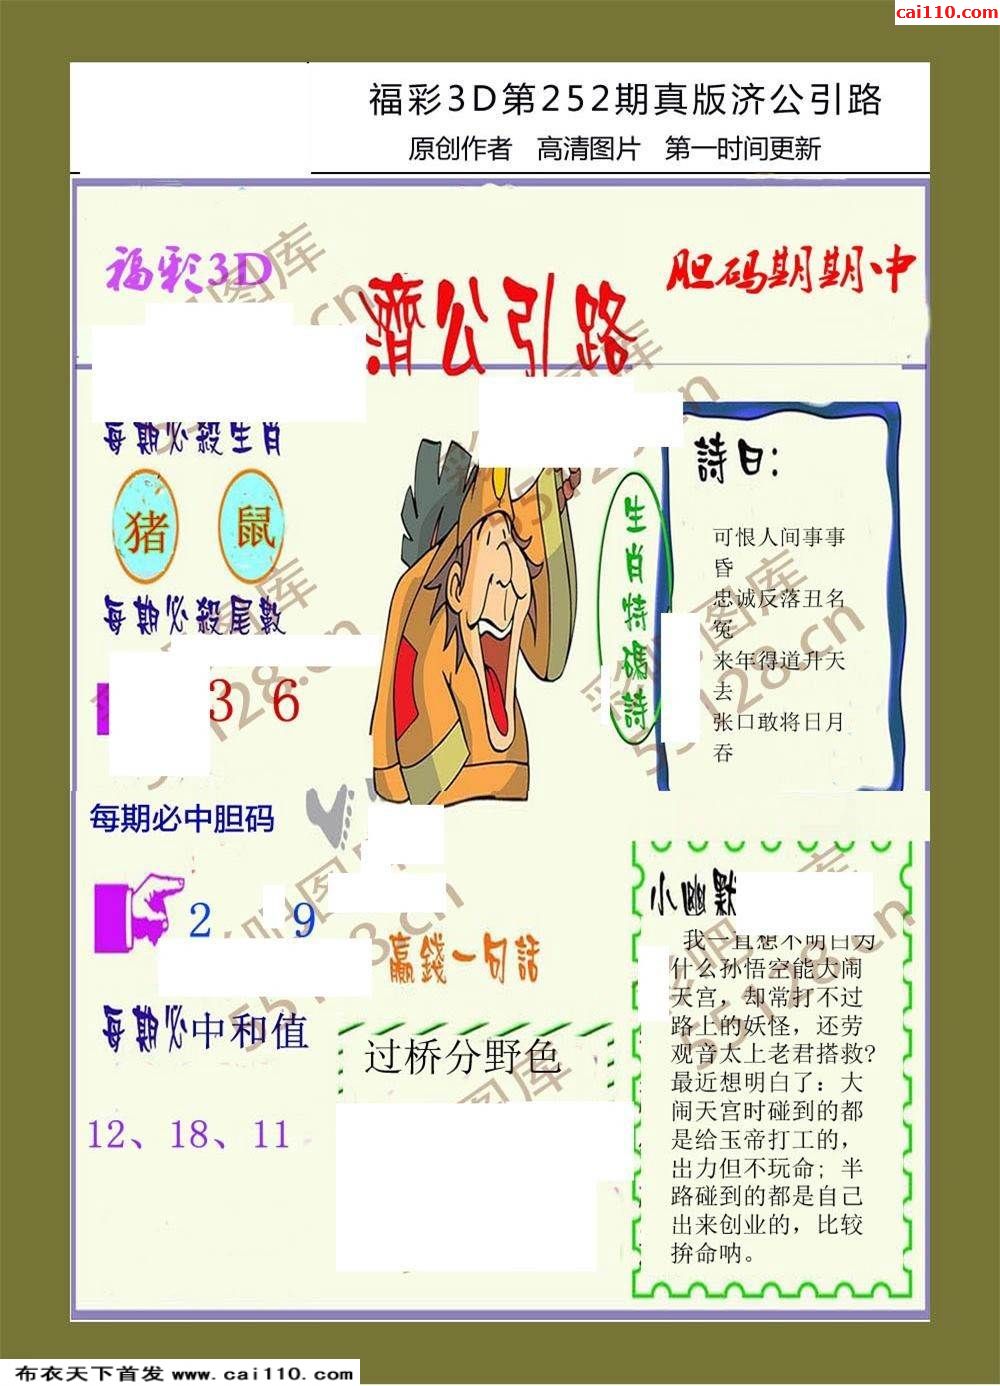 cai110.com
福彩3D第252期真版济公引路
原创作者 高清图片 第一时间更新
福彩3D
濟公引路
胆码期期中
每期必殺生肖
猪 鼠
每期必殺尾數
3 6
每期必中胆码
2 9
每期必中和值
12、18、11
生肖特碼詩
詩曰:
可恨人间事事
昏
忠诚反落丑名
冤
来年得道升天
去
张口敢将日月
吞
贏錢一句話
过桥分野色
小幽默
我一直想不明白为
什么孙悟空能大闹
天宫，却常打不过
路上的妖怪，还劳
观音太上老君搭救?
最近想明白了：大
闹天宫时碰到的都
是给玉帝打工的，
出力但不玩命; 半
路碰到的都是自己
出来创业的，比较
拚命呐。
彩吧图库
55128.cn
布衣天下首发 www.cai110.com